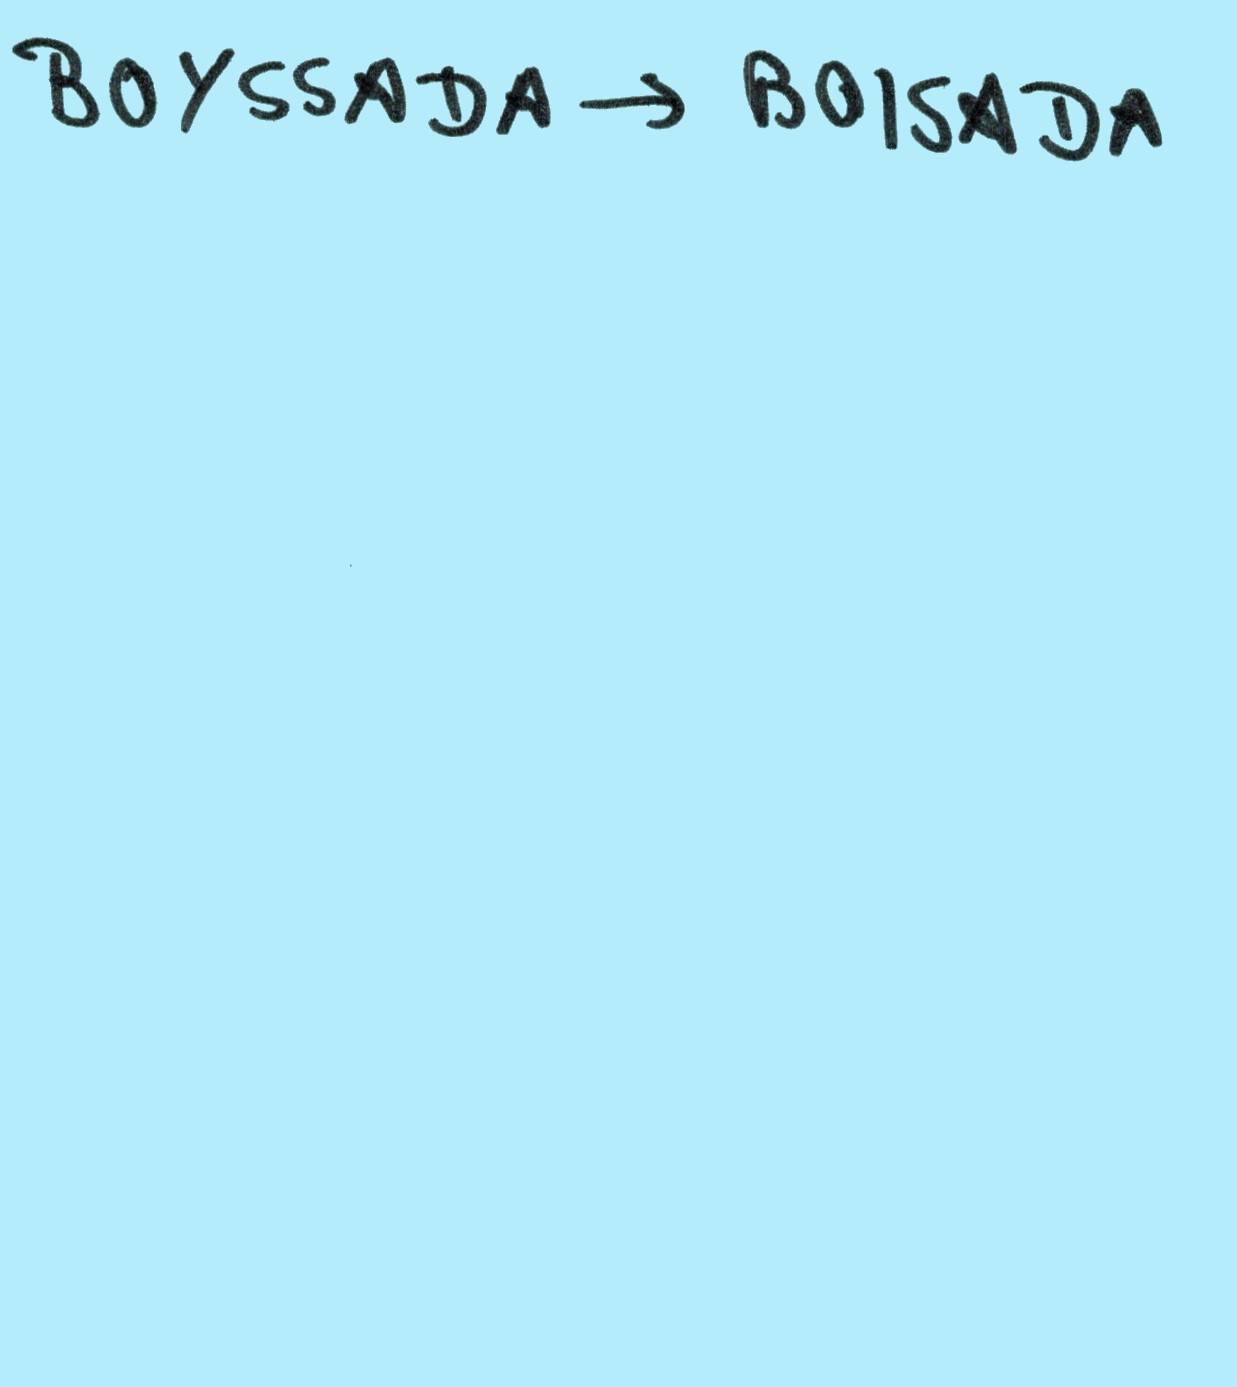 BOYSSADA → BOISADA